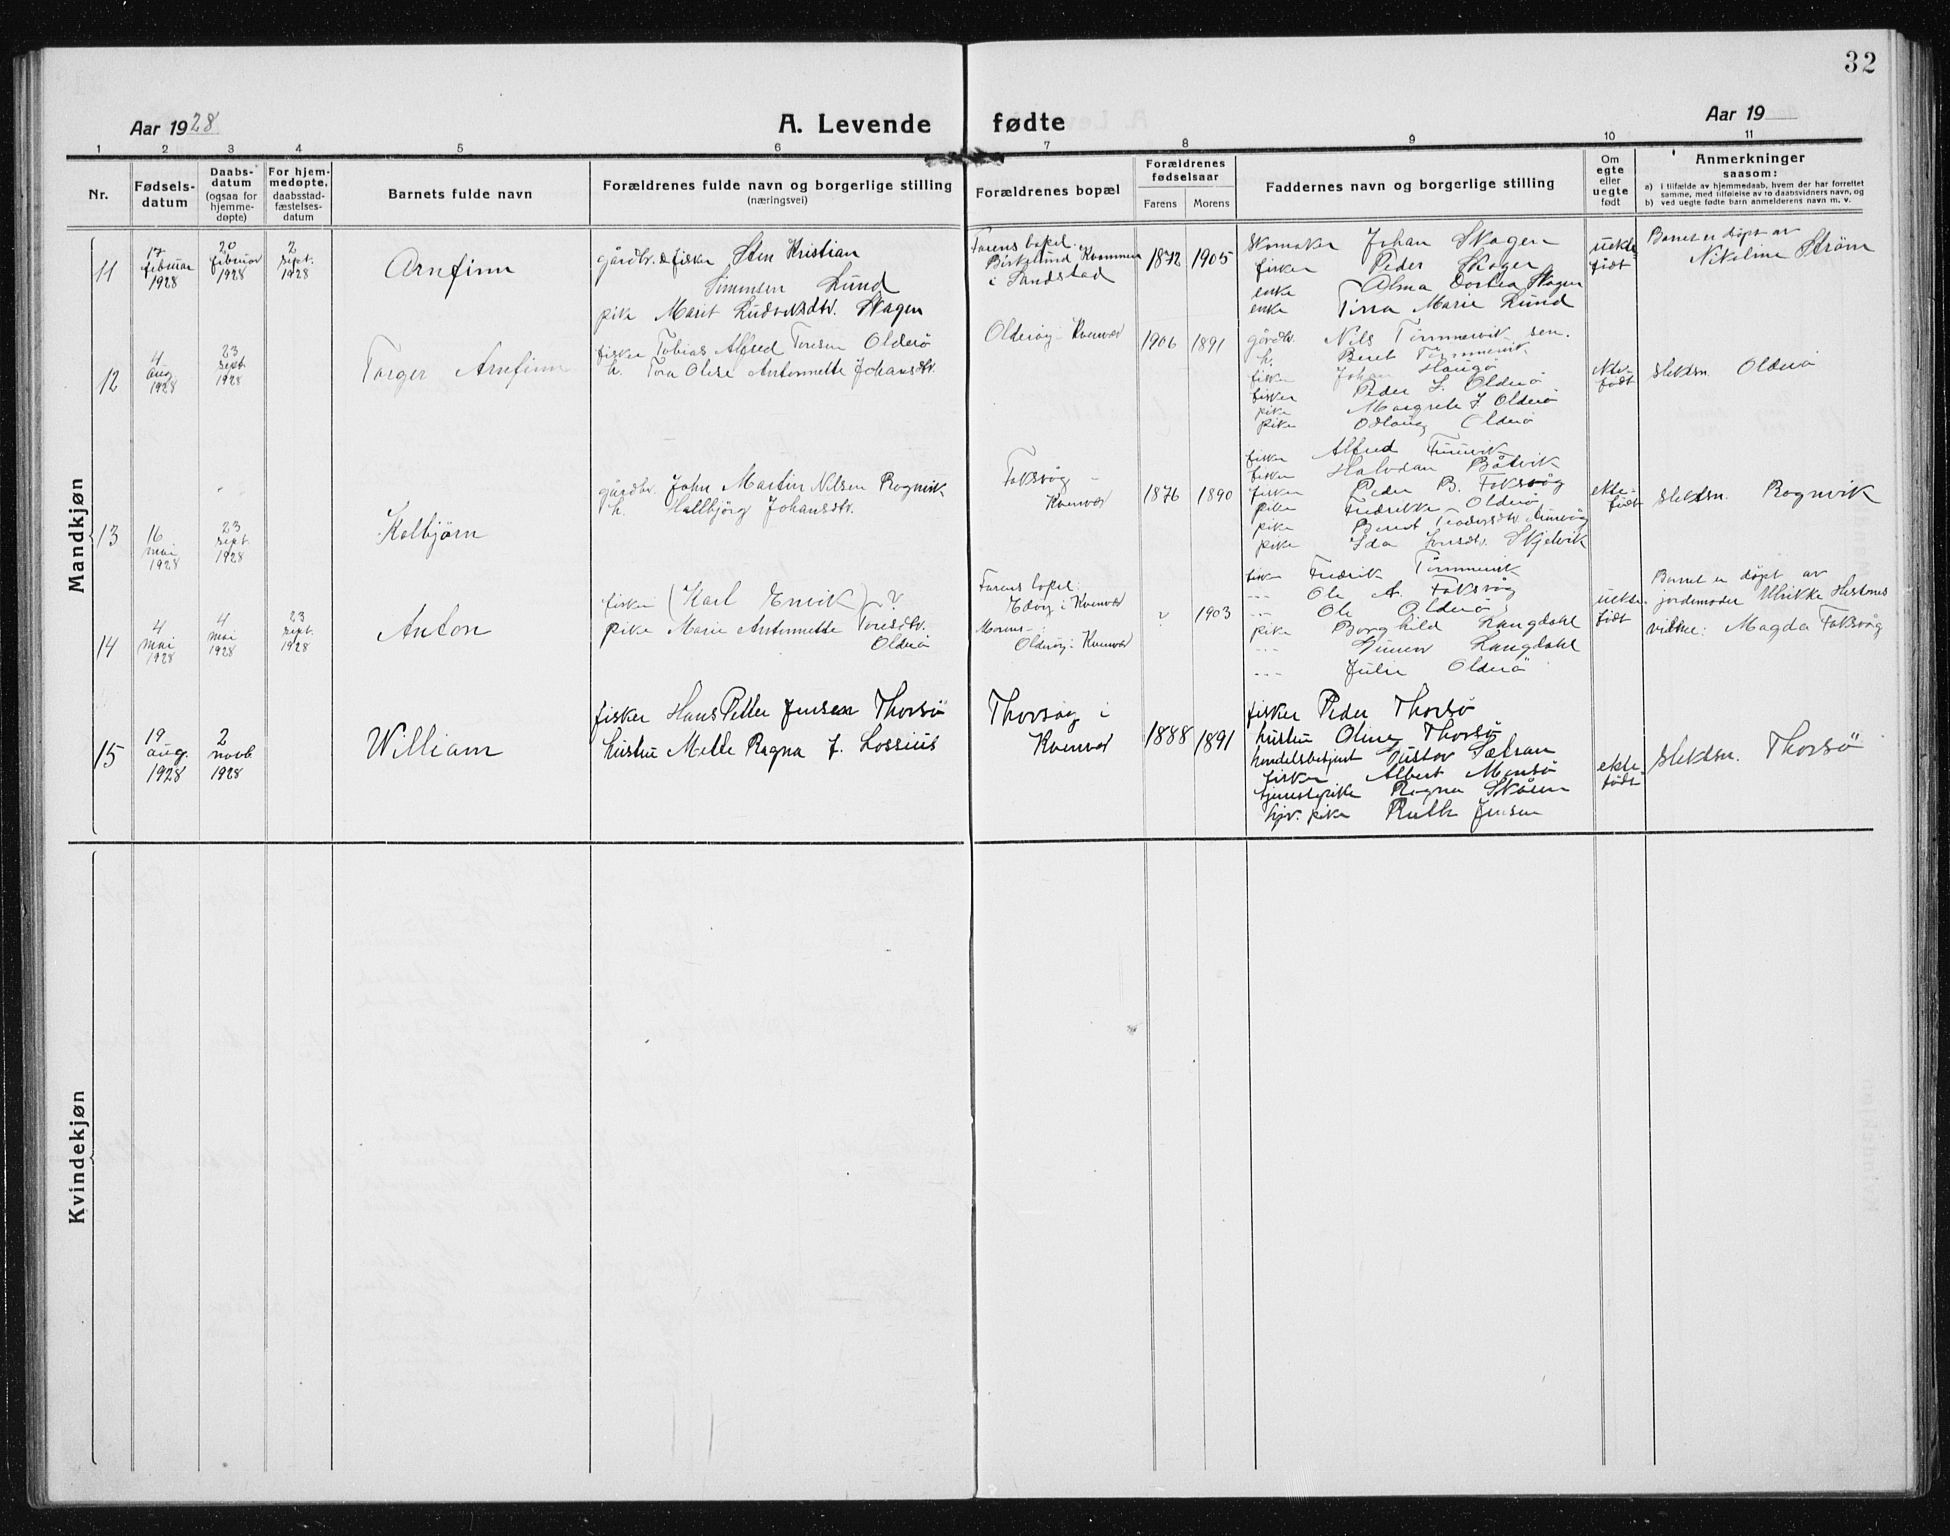 32
Aar 1928
A. Levende fødte
Aar 19
1 2 3 4 5 6 7 8 9 10 11
Nr.
Fødsels-
datum
Daabs-
datum
(ogsaa for
hjemme-
døpte)
For hjem-
medøpte,
daabsstad-
fæstelses-
datum
Barnets fulde navn
Forældrenes fulde navn og borgerlige stilling
(næringsvei)
Forældrenes bopæl
Forældrenes
fødselsaar
Farens Morens
Faddernes navn og borgerlige stilling
Om
egte
eller
uegte
født
Anmerkninger
saasom:
a) i tilfælde av hjemmedaab, hvem der har forrettet
samme, med tilføielse av to daabsvidners navn, og
b) ved uegte fødte barn anmelderens navn m. v.
Mandkjøn
11
17
februar
1928
20
februar
1928
2
sept.
1928
Arnfinn
gårdbr. & fisker Sten Kristian
Simonsen Lund
pike Marit Ludviksdtr. Skagen
Farens bopel.
Birkelund, Kvammen
i Sandstad
1872 1905
skomaker Johan Skagen
fisker Peder Skagen
enke Alma Dortea Skagen
enke Tina Marie Lund
uekte
født
Barnet er døpt av
Nikoline Strøm
12
4
aug
1928
23
sept.
1928
Torger Arnfinn
fisker Tobias Alfred Toresen Olderø
h. Tora Oline Antonnette Johansdtr.
Olderøy i Kvenvær
1906 1891
gårdbr. Nils Tømmervik sen.
h. Beret Tømmervik
fisker Johan Haugø
fisker Peder L. Olderø
pike Margrete J. Olderø
pike Odlaug Olderø
ekte-
født
slektsn. Olderø
13
16
mai
1928
23
sept
1928
Kolbjørn
gårdbr. John Martin Nilsen Rognvik
h. Hallbjørg Johansdtr.
Foksvåg -
Kvenvær
1876 1890
fisker Alfred
fisker Halvdan Båtvik
fisker Peder B. Foksvåg
pike Fredrikke Olderø
pike Beret
pike Ida Skjelvik
ekte-
født
slektsn. Rognvik
14
4
mai
1928
4
mai
1928
23
sept.
1928
Anton
fisker (Karl Ervik) ?
pike Marie Antonnette Toresdtr.
Olderø
Farens bopel.
i Kvenvær
Morens -:-
Olderøy i Kvenvær
1903
fisker Fredrik Tømmervik
--- Ole A. Foksvåg
--- Ole Olderø
pike Borghild Langdahl
--- Langdahl
--- Julie Olderø
uekte-
født
Barnet er døpt av
jordemoder Ulrikke Hestnes
vidne: Magda Foksvåg
15
19
aug.
1928
2
novb
1928
William
fisker Hans Petter Jensen Thorsø
hustru Mette Ragna J. Lossius
Thorsøy i
Kvenvær
1888 1891
fisker Peder Thorsø
hustru Oline Thorsø
handelsbetjent Gustav Sætran
fisker Albert Monsø
tjenestepike Ragna Skåren
hjv. pike Ruth Jensen
ekte
født
slektsn. Thorsø
Kvindekjøn